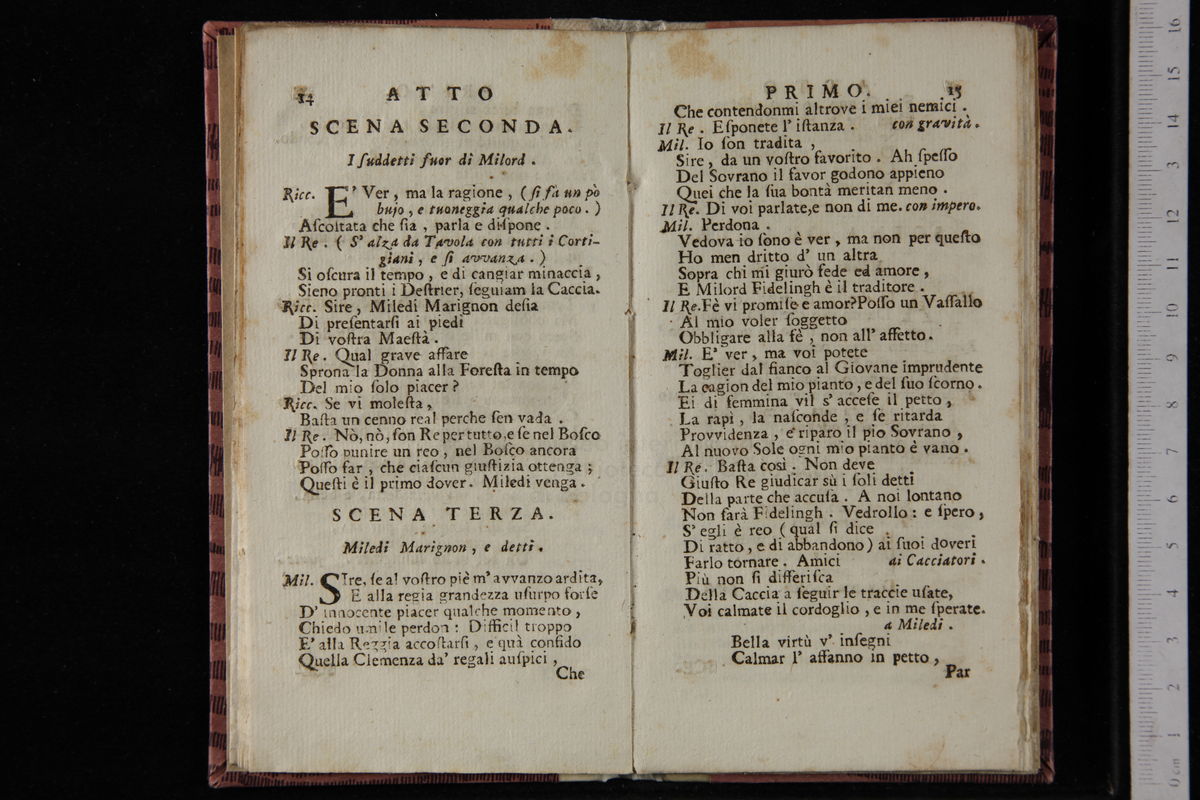 14 ATTO
SCENA SECONDA.
I ſuddetti fuor di Milord.
Ricc. E' Ver, ma la ragione, (ſi fa un pò
bujo, e tuoneggia qualche poco.)
Aſcoltata che ſia, parla e diſpone.
Il Re. (S' alza da Tavola con tutti i Corti-
giani, e ſi avvanza.)
Si oſcura il tempo, e di cangiar minaccia,
Sieno pronti i Deſtrier, ſeguiam la Caccia.
Ricc. Sire, Miledi Marignon deſia
Di preſentarſi ai piedi
Di voſtra Maeſtà.
Il Re. Qual grave affare
Sprona la Donna alla Foreſta in tempo
Del mio ſolo piacer?
Ricc. Se vi moleſta,
Baſta un cenno real perche ſen vada.
Il Re. Nò, nò, ſon Re per tutto, e ſe nel Boſco
Poſſo punire un reo, nel Boſco ancora
Poſſo far, che ciaſcun giuſtizia ottenga;
Queſti è il primo dover. Miledi venga.
SCENA TERZA.
Miledi Marignon, e detti.
Mil. SIre, ſe al voſtro piè m' avvanzo ardita,
E alla regia grandezza uſurpo forſe
D' innocente piacer qualche momento,
Chiedo umile perdon: Difficil troppo
E' alla Reggia accoſtarſi, e quà confido
Quella Clemenza da' regali auſpici,
Che
PRIMO. 15
Che contendonmi altrove i miei nemici.
Il Re. Eſponete l' iſtanza. con gravità.
Mil. Io ſon tradita,
Sire, da un voſtro favorito. Ah ſpeſſo
Del Sovrano il favor godono appieno
Quei che la ſua bontà meritan meno.
Il Re. Di voi parlate, e non di me. con impero.
Mil. Perdona.
Vedova io ſono è ver, ma non per queſto
Ho men dritto d' un altra
Sopra chi mi giurò fede ed amore,
E Milord Fidelingh è il traditore.
Il Re. Fè vi promiſe e amor? Poſſo un Vaſſallo
Al mio voler ſoggetto
Obbligare alla fè, non all' affetto.
Mil. E' ver, ma voi potete
Toglier dal fianco al Giovane imprudente
La cagion del mio pianto, e del ſuo ſcorno.
Ei di femmina vil s' acceſe il petto,
La rapì, la naſconde, e ſe ritarda
Provvidenza, e riparo il pio Sovrano,
Al nuovo Sole ogni mio pianto è vano.
Il Re. Baſta così. Non deve
Giuſto Re giudicar sù i ſoli detti
Della parte che accuſa. A noi lontano
Non ſarà Fidelingh. Vedrollo: e ſpero,
S' egli è reo (qual ſi dice
Di ratto, e di abbandono) ai ſuoi doveri
Farlo tornare. Amici ai Cacciatori.
Più non ſi differiſca
Della Caccia a ſeguir le traccie uſate,
Voi calmate il cordoglio, e in me ſperate.
a Miledi.
Bella virtù v' inſegni
Calmar l' affanno in petto,
Par
16
15
14
13
12
11
10
9
8
7
6
5
4
3
2
1
0 cm